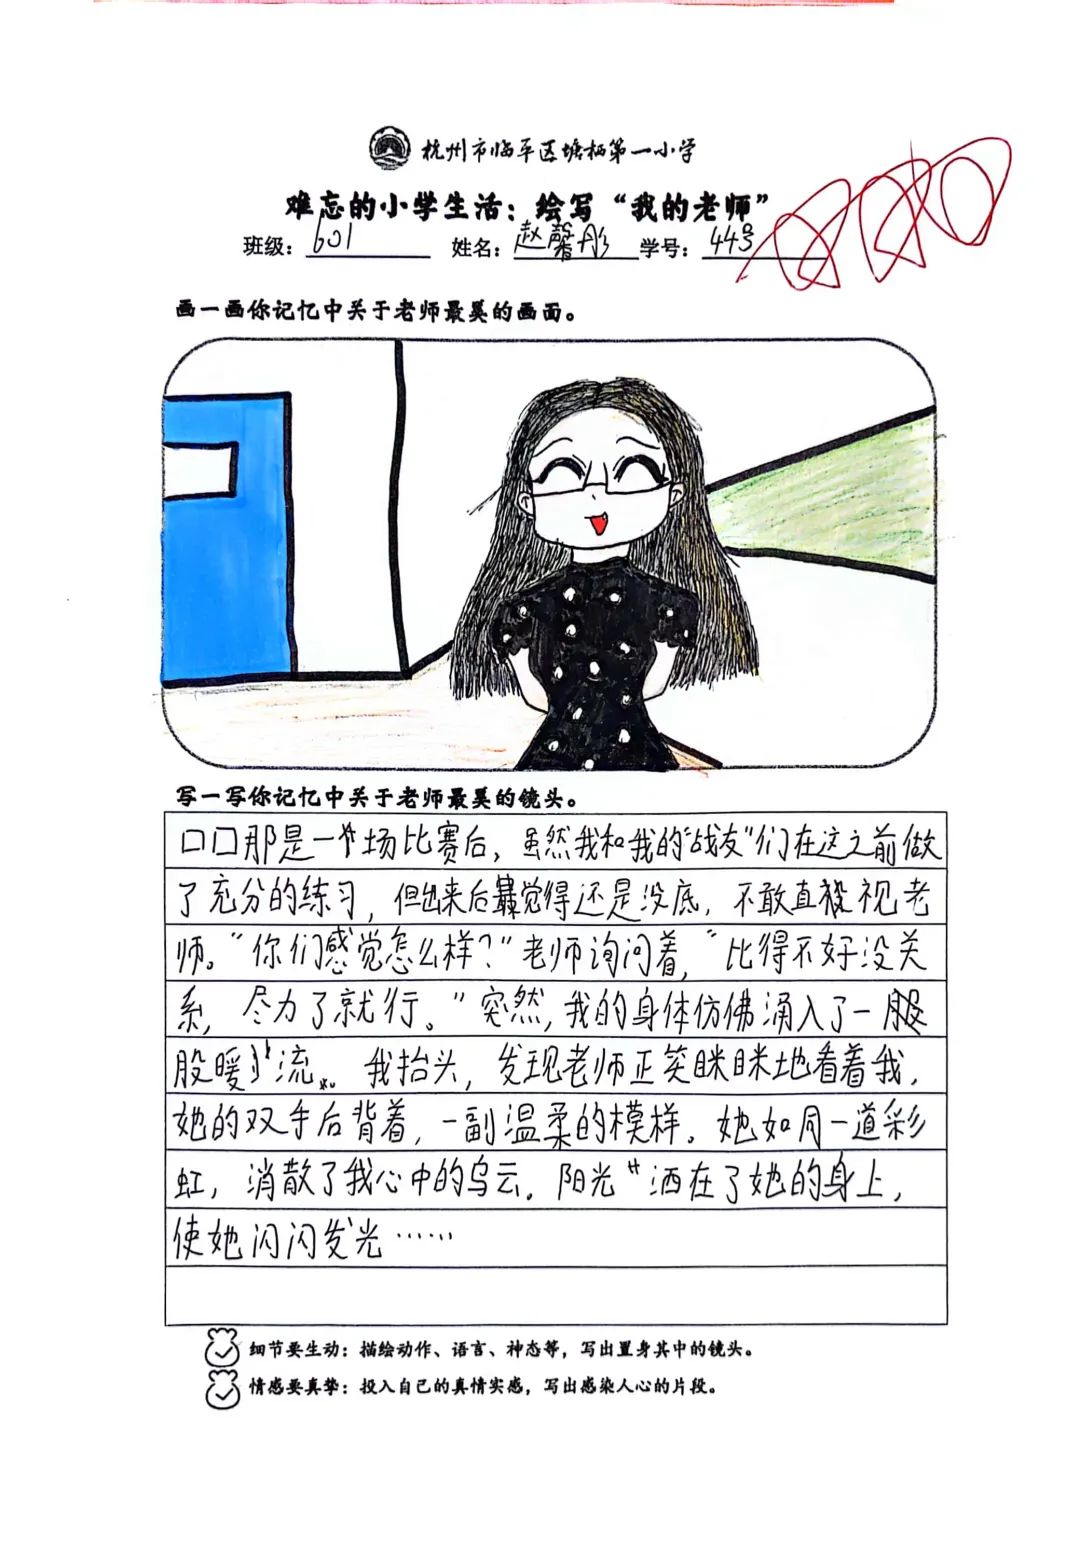 杭州市临平区塘栖第一小学
难忘的小学生活：绘写“我的老师”
班级：601 姓名：赵馨彤 学号：44号
画一画你记忆中关于老师最美的画面。
写一写你记忆中关于老师最美的镜头。
口口那是一场比赛后，虽然我和我的“战友”们在这之前做
了充分的练习，但出来后觉得还是没底，不敢直视老
师。“你们感觉怎么样？”老师询问着，“比得不好没关
系，尽力了就行。”突然，我的身体仿佛涌入了一
股暖流。我抬头，发现老师正笑眯眯地看着我，
她的双手后背着，一副温柔的模样。她如同一道彩
虹，消散了我心中的乌云。阳光洒在了她的身上，
使她闪闪发光……
细节要生动：描绘动作、语言、神态等，写出置身其中的镜头。
情感要真挚：投入自己的真情实感，写出感染人心的片段。